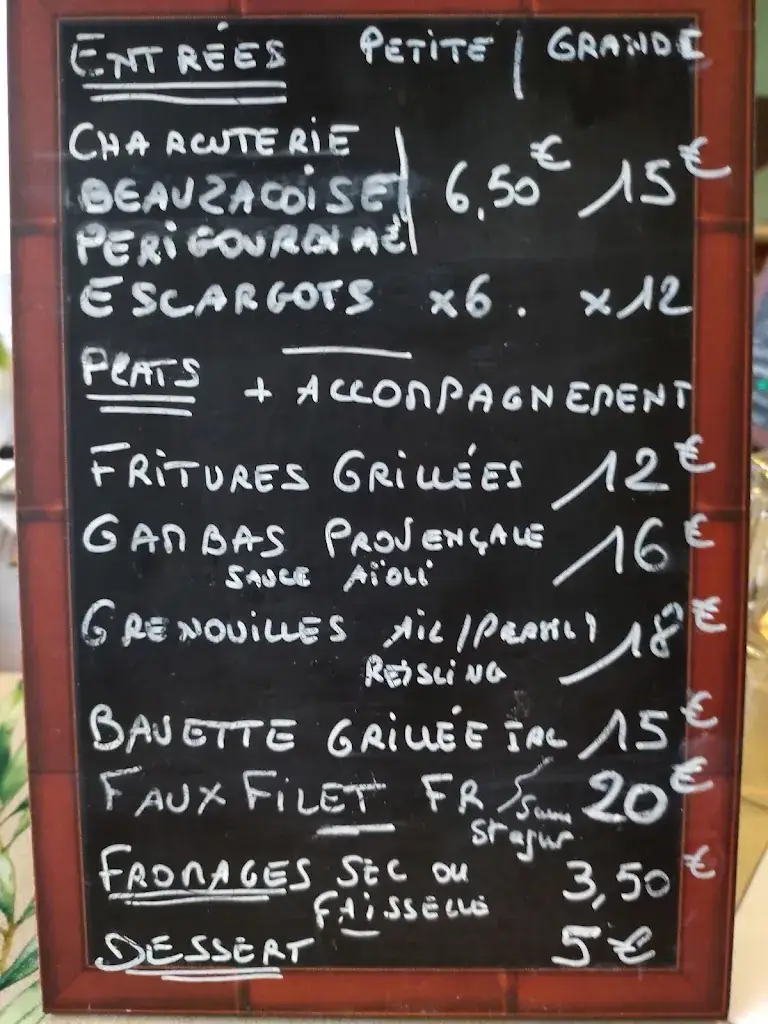 ENTRÉES PETITE | GRANDE
CHARCUTERIE
BEAUZACOISE 6,50€ 15€
PERIGOURDINE
ESCARGOTS x6. x12
PLATS + ACCOMPAGNEMENT
FRITURES GRILLÉES 12€
GAMBAS PROVENÇALE 16€
SAUCE AÏOLI
GRENOUILLES AIL/PERSIL 18€
REISLING
BAVETTE GRILLÉE IRL 15€
FAUX FILET FR 20€
St agur
FROMAGES SEC OU 3,50€
FAISSELLE
DESSERT 5€